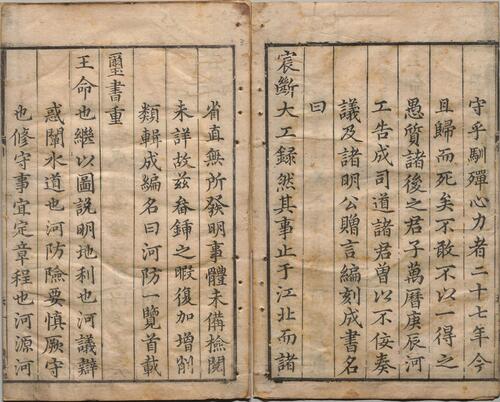 守乎馴殫心力者二十七年今
且歸而死矣不敢不以一得之
愚質諸後之君子萬曆庚辰河
工告成司道諸君曽以不佞奏
議及諸明公贈言編刻成書名
曰
宸斷大工録然其事止于江北而諸
省直無所發明事體未備檢閱
未詳故兹畚鍤之暇復加增削
類輯成編名曰河防一覽首載
璽書重
王命也繼以圖説明地利也河議辯
惑闡水道也河防險要慎厥守
也修守事宜定章程也河源河